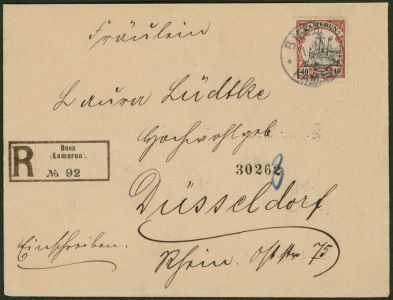 Fräulein
KAMERUN
40 40
Laura Lüdtke
Hochwohlgeb.
R
Buea
(Kamerun).
№ 92
30262
Düsseldorf.
Einschreiben.
Rhein. Ost str 75